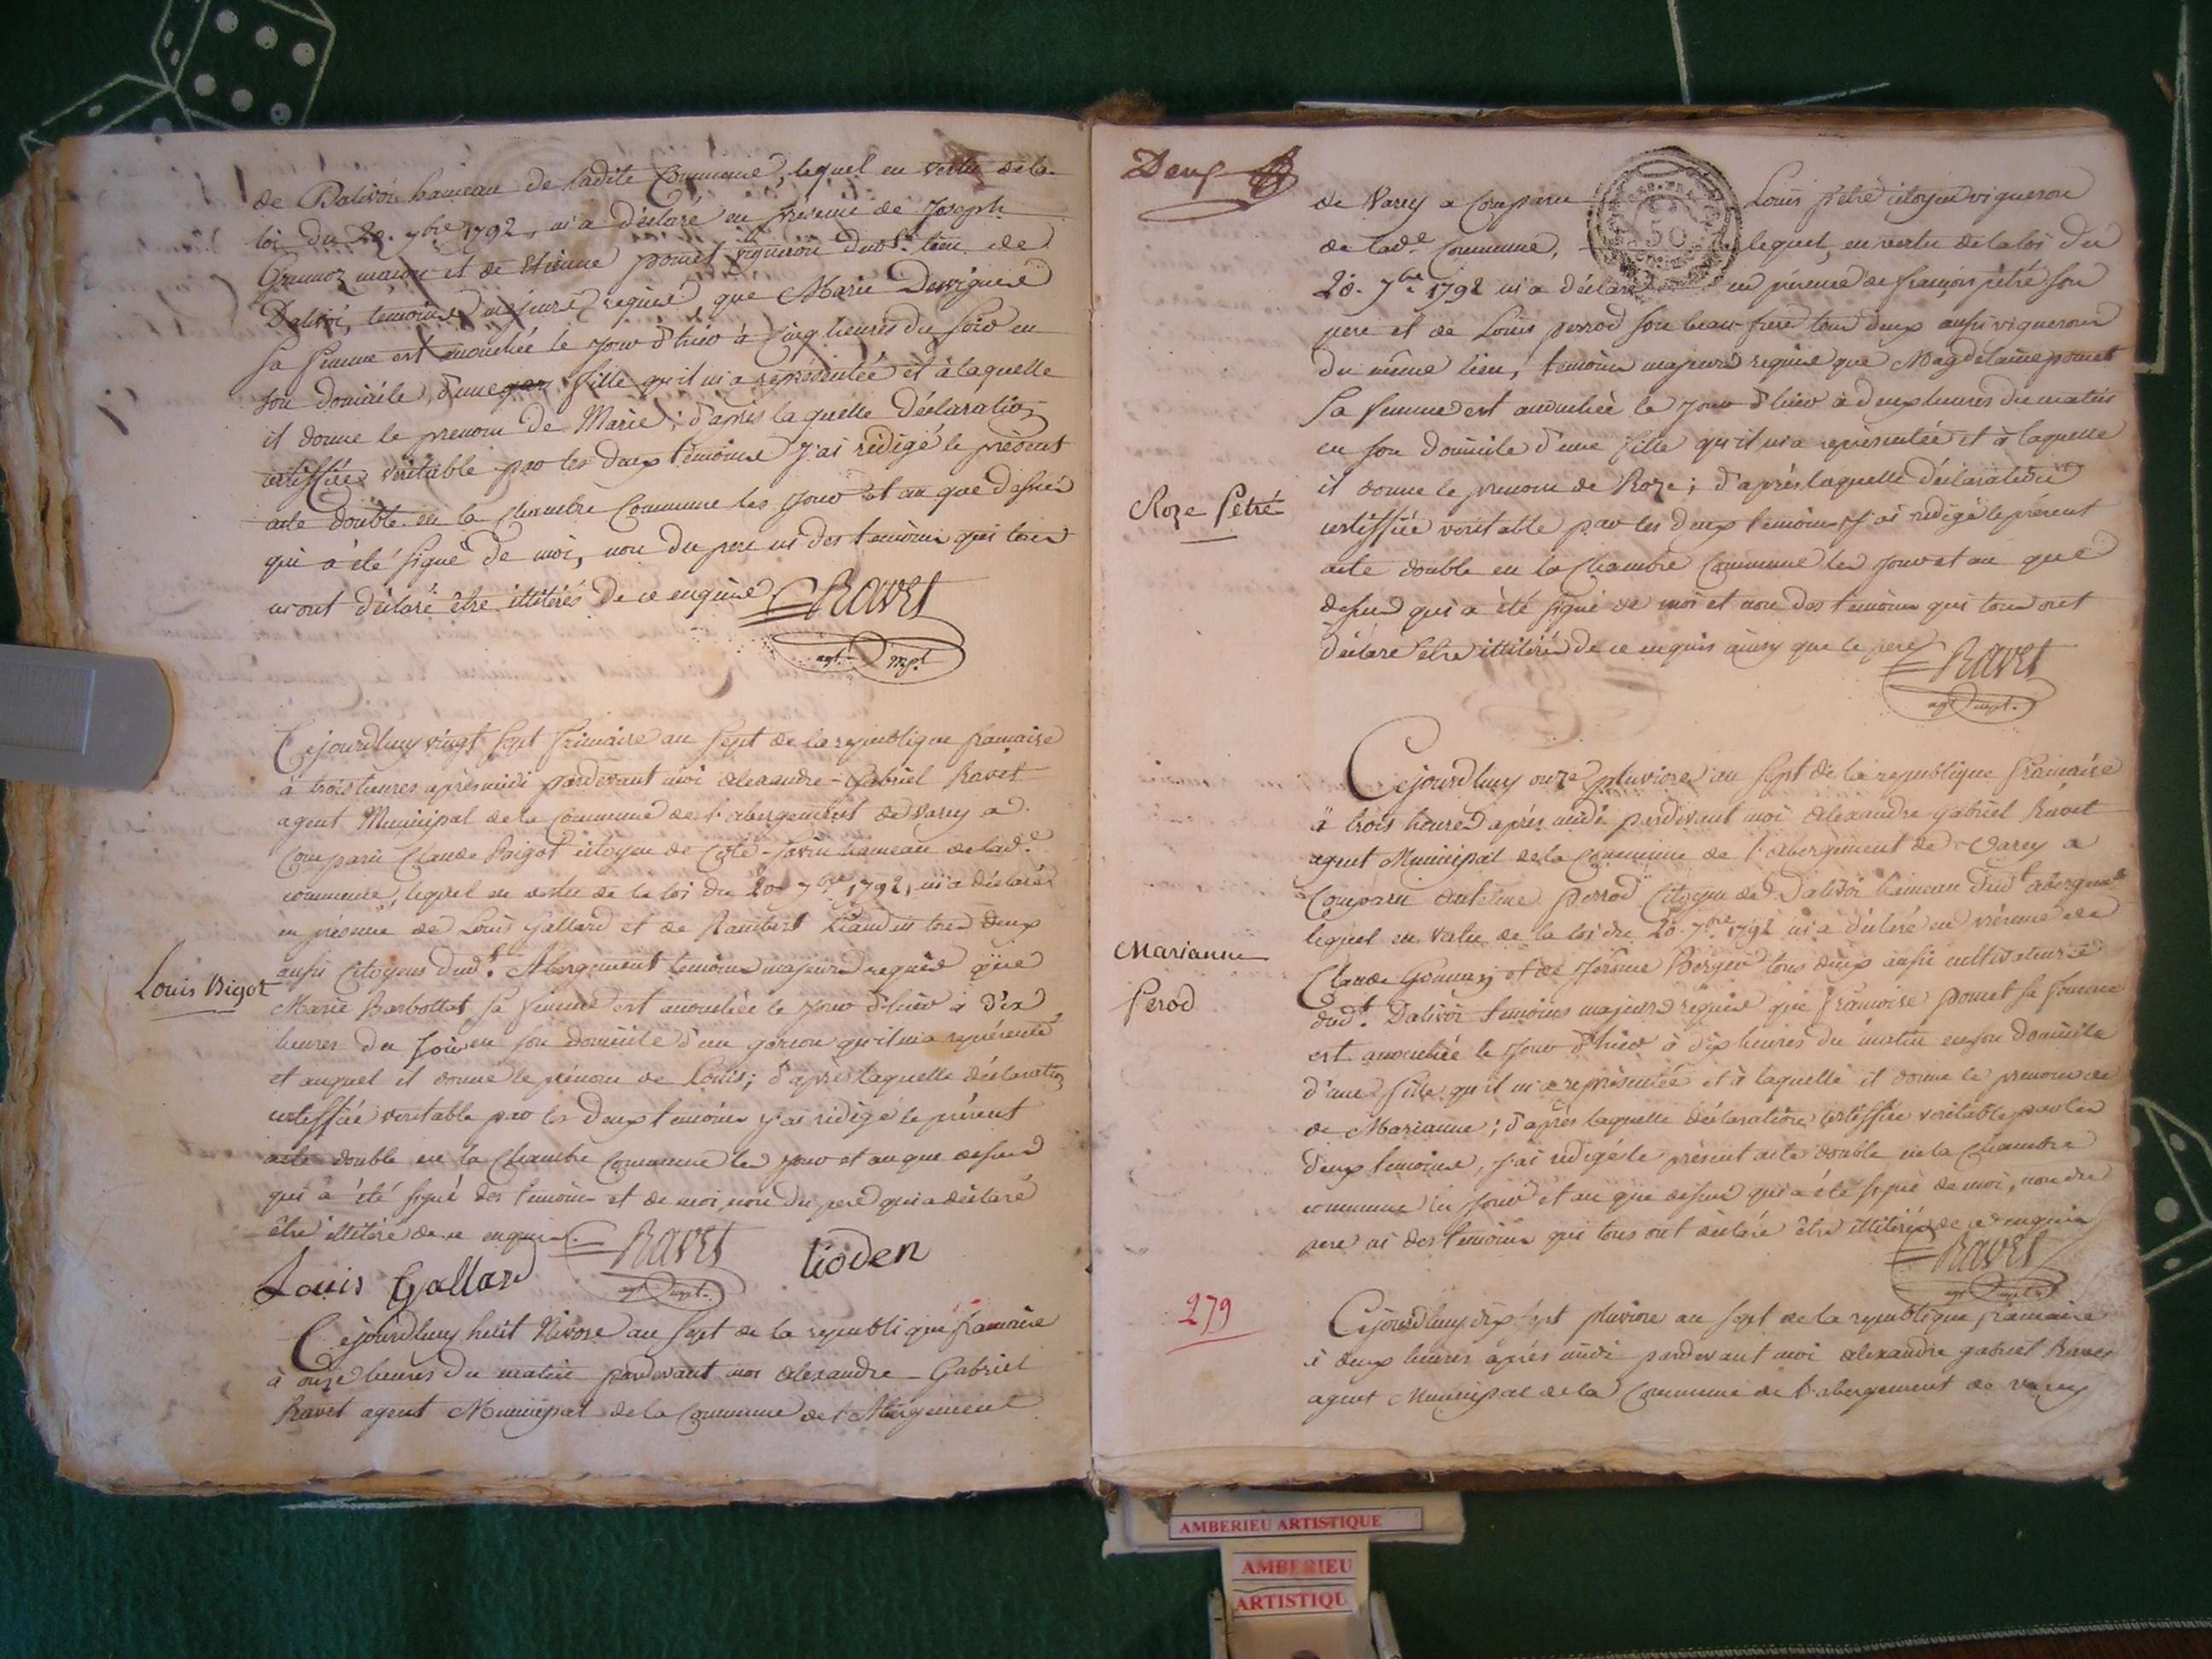 de Dalivoi hameau de ladite Commune, lequel en vertu de la
loi du 20. 7bre 1792, m'a déclaré en présence de Joseph
maçon et de Etienne pomet vigneron dud.t lieu de
Dalivoi, temoins majeurs requis, que Marie
sa femme est accouchée le jour d'hier à cinq heures du soir en
son domicile, d'une fille qu'il m'a representée et à laquelle
il donne le prenom de Marie; d'après laquelle déclaration
certiffiée véritable par les deux témoins j'ai rédigé le présent
acte double en la chambre Commune les jour et an que dessus
qui a été signé de moi, non du pere ni des temoins qui tous
m'ont déclaré être illitérés de ce enquis
Ravet
agt. mpl.
Cejourdhuy vingt sept frimaire an sept de la republique francaise
à trois heures après midi pardevant moi Alexandre-Gabriel Ravet
agent Municipal de la Commune de l'abergement de varey a
Comparu Claude Bigot citoyen de Côte-Savin hameau de lad.e
commune, lequel en vertu de la loi du 20 7bre 1792, m'a déclaré
en présence de Louis Gallard et de Rambert tous deux
aussi Citoyens dud.t Abergement temoins majeurs requis que
Louis Bigot
Marie Barbollat sa femme est accouchée le jour d'hier à dix
heures du soir en son domicile d'un garcon qu'il m'a représenté
et auquel il donne le prénom de Louis; d'apres laquelle déclaration
certiffiée veritable par les deux temoins j'ai rédigé le présent
acte double en la Chambre commune les jour et an que dessus
qui a été signé des temoins et de moi non du pere qui a déclaré
être illitéré de ce enquis.
Ravet
agt mpl.
lioden
Louis Gallard
Cejourdhuy huit Nivose an sept de la republique francaise
à onze heures du matin pardevant moi Alexandre-Gabriel
Ravet agent Municipal de la Commune de l'Abergement
Deux
de Varey a comparu Louis pétré citoyen vigneron
50
de lad.e Commune, lequel, en vertu de la loi du
20. 7bre 1792 m'a déclaré en présence de françois pétré son
pere et de Louis perrod son beau-frere tous deux aussi vignerons
du même lieu, temoins majeurs requis que Magdelaine pomet
sa femme est accouchée le jour d'hier à deux heures du matin
en son domicile d'une fille qu'il m'a representée et à laquelle
il donne le prenom de Roze; d'après laquelle déclaration
Roze Pétré
certiffiée veritable par les deux temoins, j'ai rédigé le présent
acte double en la Chambre Commune les jour et an que
dessus qui a été signé de moi et non des temoins qui tous ont
déclaré être illitérés de ce enquis ainsy que le pere
Ravet
agt mpl.
Cejourdhuy onze pluviose an sept de la republique francaise
à trois heures après midi pardevant moi Alexandre gabriel Ravet
agent Municipal de la Commune de l'abergement de Varey a
Comparu Antelme perrod Citoyen de Dalivoi hameau dud.t abergem.t
lequel en vertu de la loi du 20. 7bre 1792 m'a déclaré en présence de
Marianne
Perod
Claude et de Jérome Berger tous deux aussi cultivateurs
dud.t Dalivoi temoins majeurs requis que françoise pomet sa femme
est accouchée le jour d'hier à dix heures du matin en son domicile
d'une fille qu'il m'a représentée et à laquelle il donne le prenom
de Marianne; d'après laquelle déclaration certiffiée veritable par les
deux temoins, j'ai rédigé le présent acte double en la Chambre
commune les jour et an que dessus qui a été signé de moi, non du
pere ni des temoins qui tous ont déclaré être illitérés de ce enquis
Ravet
agt mpl.
279
Cejourdhuy dix sept pluviose an sept de la republique francaise
à deux heures après midi pardevant moi Alexandre gabriel Ravet
agent Municipal de la Commune de l'abergement de varey
AMBERIEU ARTISTIQUE
AMBERIEU
ARTISTIQU